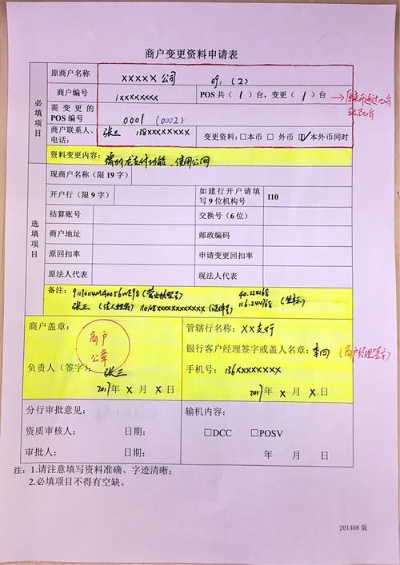 商户变更资料申请表
必填项目
原商户名称 XXXXX 公司
商户编号 1xxxxxxxx POS共（1）台，变更（1）台
需变更的POS编号 0001 (0002)
商户联系人、电话： 张三、138xxxxxxxx 变更资料：□本币 □外币 ☑本外币同时
资料变更内容：
选填项目
现商户名称（限19字）
开户行（限9字） 如建行开户请填写9位机构号 110
结算账号 交换号（6位）
商户地址 邮政编码
原回扣率 申请变更回扣率
原法人代表 现法人代表
备注：
张三
商户盖章： 商户公章
负责人（签字）： 张三
2017年 X 月 X 日
管辖行名称： XX支行
银行客户经理签字或盖人名章： 李四 (客户经理签字)
手机号： 136xxxxxxxx
2017年 X 月 X 日
分行审批意见： 输机内容：
资质审核人： 日期： □DCC □POSV
审批人： 日期： 年 月 日
注：1.请注意填写资料准确、字迹清晰；
2.必填项目不得有空缺。
201408版